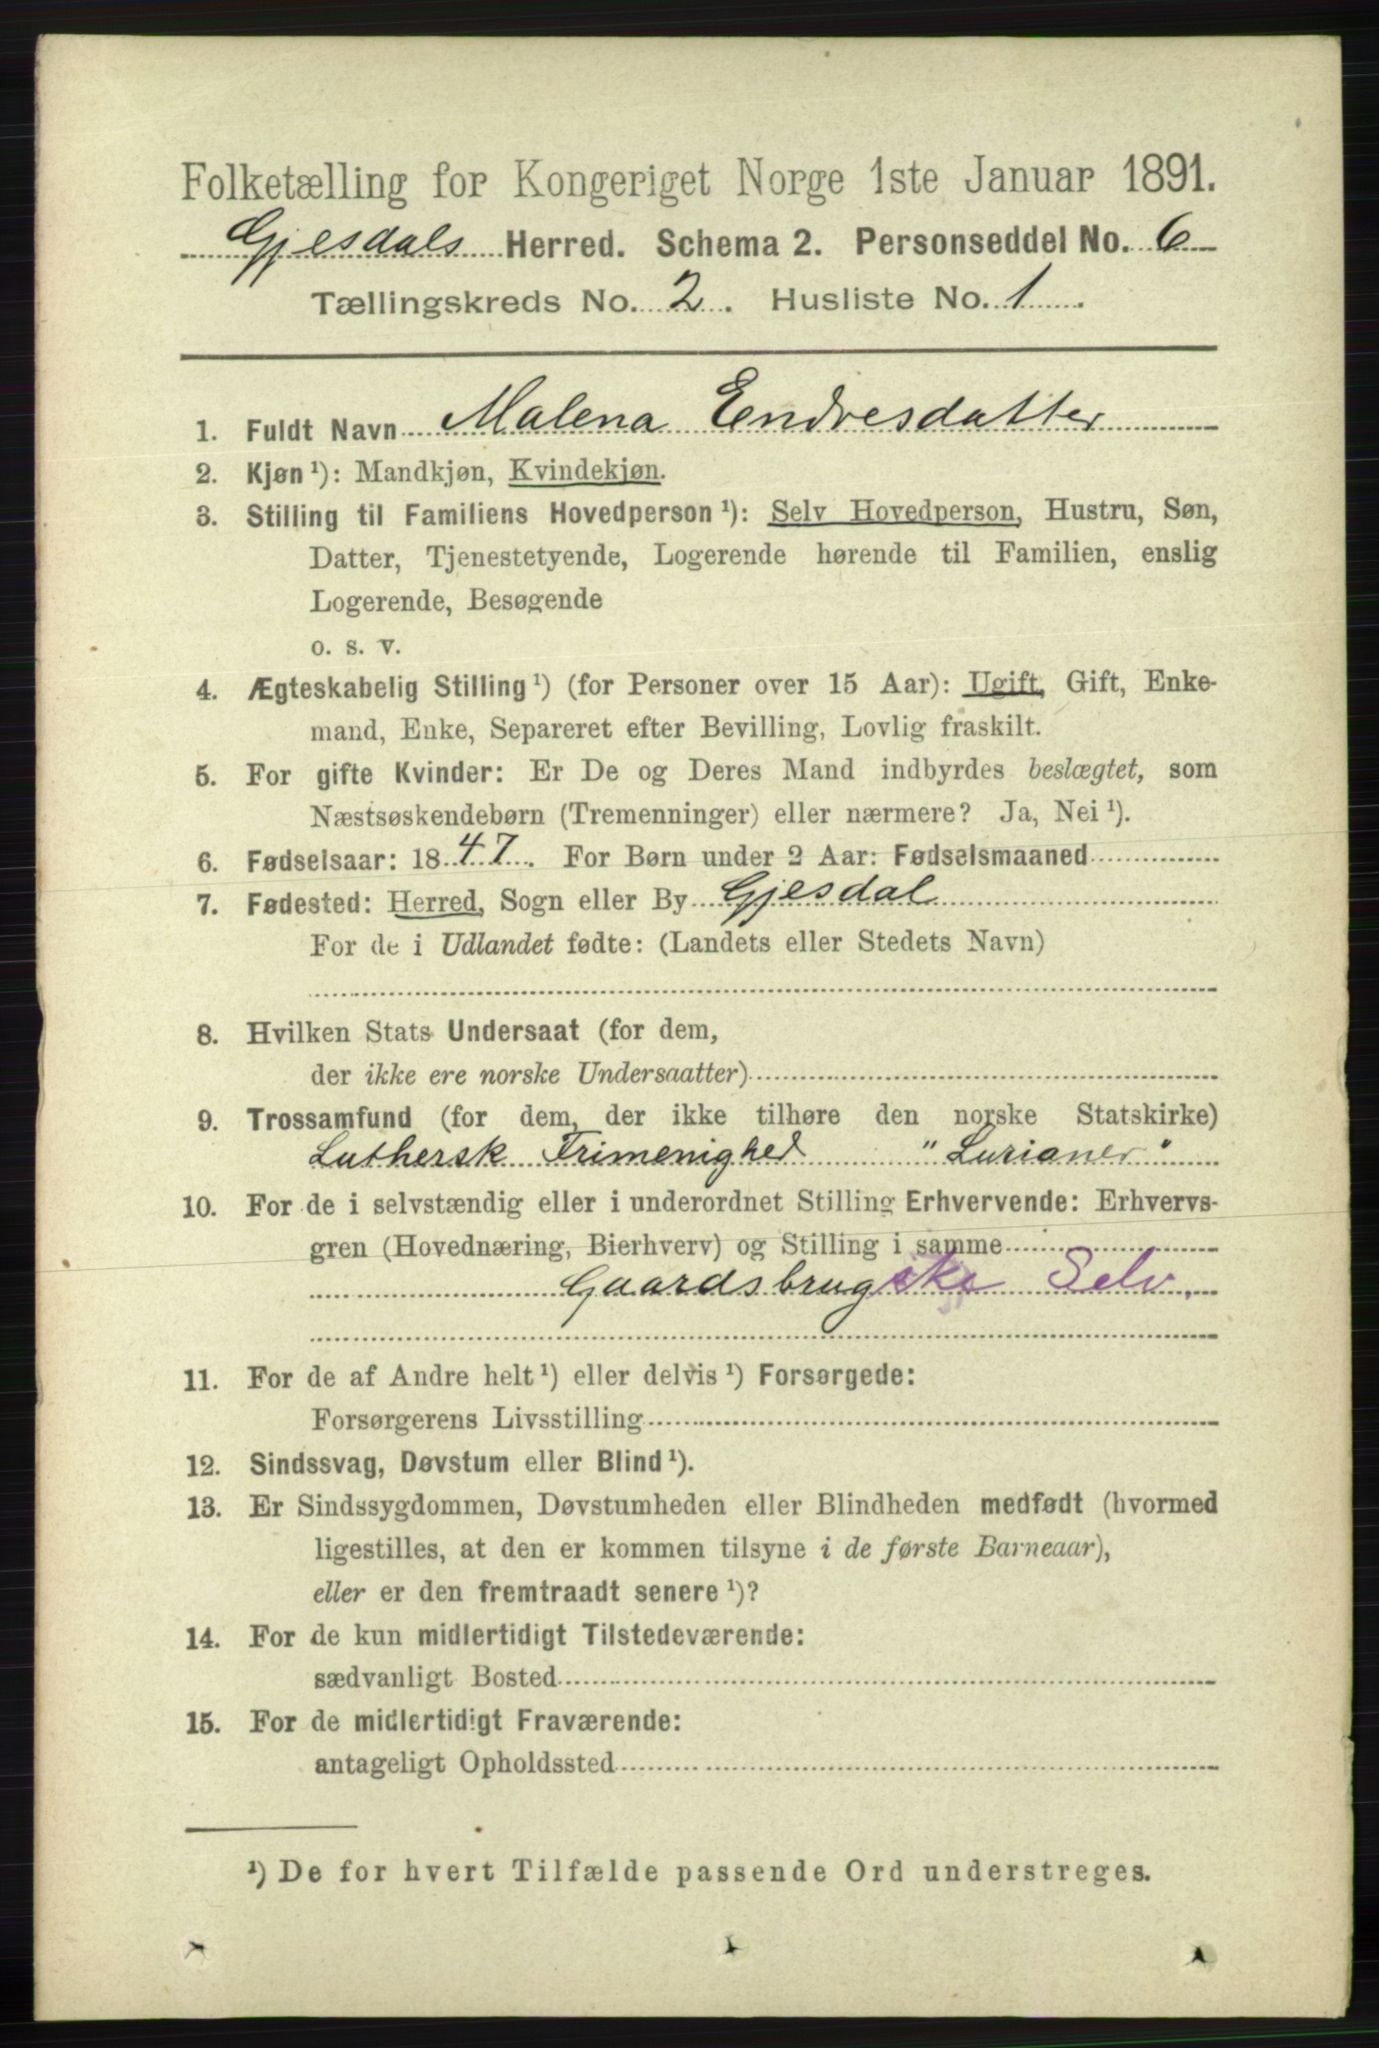 Folketælling for Kongeriget Norge 1ste Januar 1891.
Gjesdals Herred. Schema 2. Personseddel No. 6
Tællingskreds No. 2. Husliste No. 1.
1. Fuldt Navn Malena Endresdatter
2. Kjøn ¹): Mandkjøn, Kvindekjøn.
3. Stilling til Familiens Hovedperson ¹): Selv Hovedperson, Hustru, Søn,
Datter, Tjenestetyende, Logerende hørende til Familien, enslig
Logerende, Besøgende
o. s. v.
4. Ægteskabelig Stilling ¹) (for Personer over 15 Aar): Ugift, Gift, Enke-
mand, Enke, Separeret efter Bevilling, Lovlig fraskilt.
5. For gifte Kvinder: Er De og Deres Mand indbyrdes beslægtet, som
Næstsøskendebørn (Tremenninger) eller nærmere? Ja, Nei ¹).
6. Fødselsaar: 1847. For Børn under 2 Aar: Fødselsmaaned
7. Fødested: Herred, Sogn eller By Gjesdal
For de i Udlandet fødte: (Landets eller Stedets Navn)
8. Hvilken Stats Undersaat (for dem,
der ikke ere norske Undersaatter)
9. Trossamfund (for dem, der ikke tilhøre den norske Statskirke)
Luthersk Frimenighed "Lurianer"
10. For de i selvstændig eller i underordnet Stilling Erhvervende: Erhvervs-
gren (Hovednæring, Bierhverv) og Stilling i samme
Gaardsbrugske Selv.
11. For de af Andre helt ¹) eller delvis ¹) Forsørgede:
Forsørgerens Livsstilling
12. Sindssvag, Døvstum eller Blind ¹).
13. Er Sindssygdommen, Døvstumheden eller Blindheden medfødt (hvormed
ligestilles, at den er kommen tilsyne i de første Barneaar),
eller er den fremtraadt senere ¹)?
14. For de kun midlertidigt Tilstedeværende:
sædvanligt Bosted
15. For de midlertidigt Fraværende:
antageligt Opholdssted
¹) De for hvert Tilfælde passende Ord understreges.